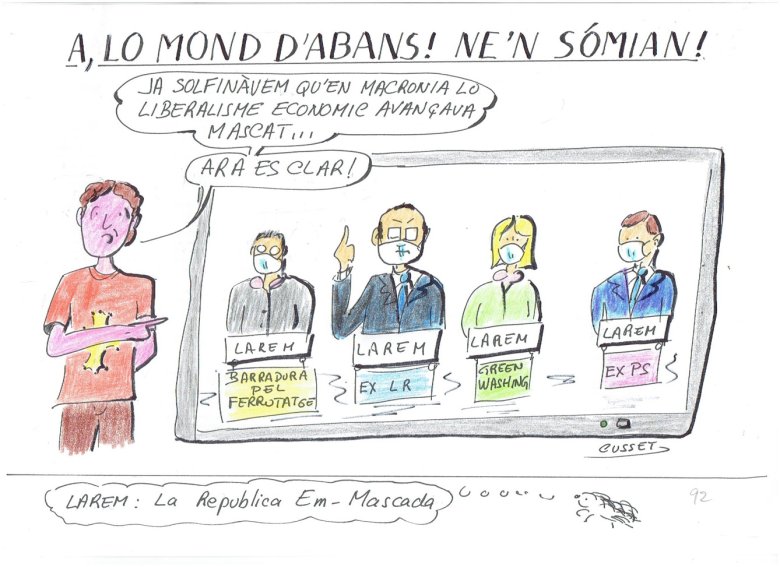 A, LO MOND D'ABANS! NE'N SÓMIAN!
JA SOLFINÀVEM QU'EN MACRONIA LO
LIBERALISME ECONOMIC AVANÇAVA
MASCAT...
ARA ES CLAR!
LAREM
BARRADURA
PEL
FERRUTATGE
LAREM
EX LR
LAREM
GREEN
WASHING
LAREM
EX PS
CUSSET
LAREM: La Republica Em-Mascada
92